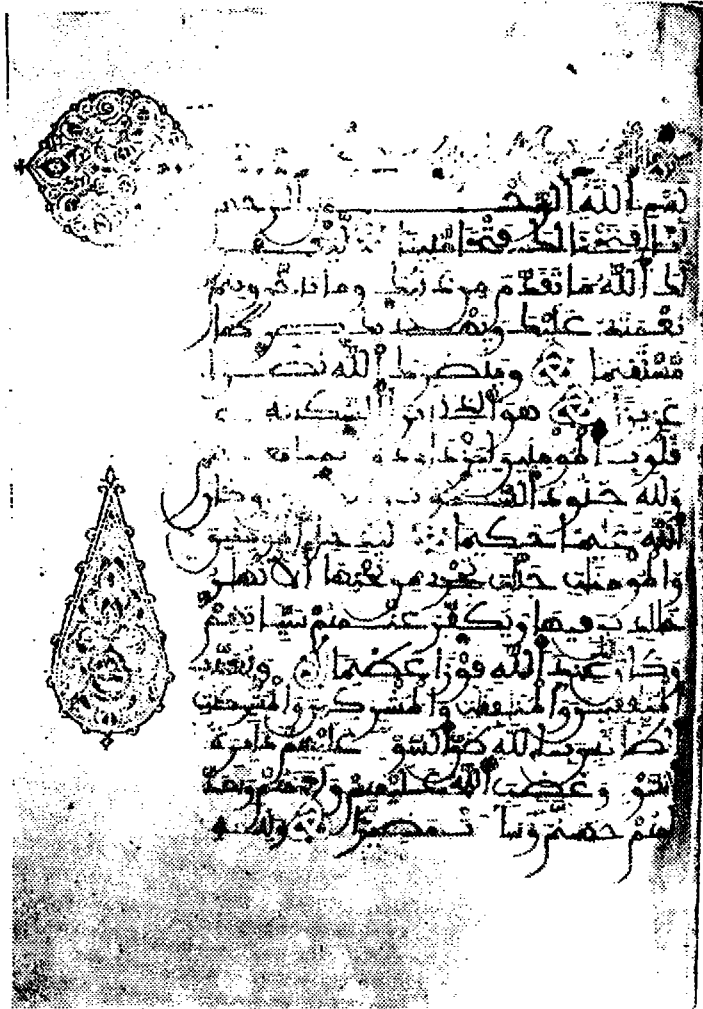 بسم الله الرحمن الرحيم
إنا فتحنا لك فتحا مبينا ليغفر
لك الله ما تقدم من ذنبك وما تأخر ويتم
نعمته عليك ويهديك صراطا
مستقيما وينصرك الله نصرا
عزيزا هو الذي أنزل السكينة في
قلوب المؤمنين ليزدادوا إيمانا مع
ولله جنود السموت وكان
الله عليما حكيما ليدخل المؤمنين
والمؤمنت جنت تجري من تحتها الأنهر
خلدين فيها ويكفر عنهم سيئاتهم
وكان عند الله فوزا عظيما ويعذب
المنفقين والمنفقت والمشركين والمشركت
الظانين بالله ظن السوء عليهم دائرة
السوء وغضب الله عليهم ولعنهم وأعد
لهم جهنم وساءت مصيرا ولله